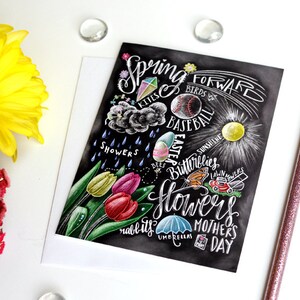 Spring
FORWARD
KITES
BIRDS
BASEBALL
SHOWERS
EASTER
SUNSHINE
Butterflies
flowers
rabbits
UMBRELLAS
MOTHERS
DAY